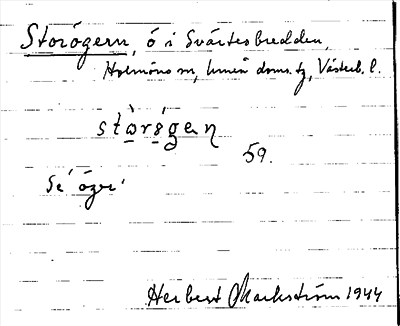 Storögern, ö i Svärtesbredden,
Holmöns sn, Umeå doms. tg, Västerb. l.
stòrǿgeɳ
59.
Se öger
Herbert Markström 1944